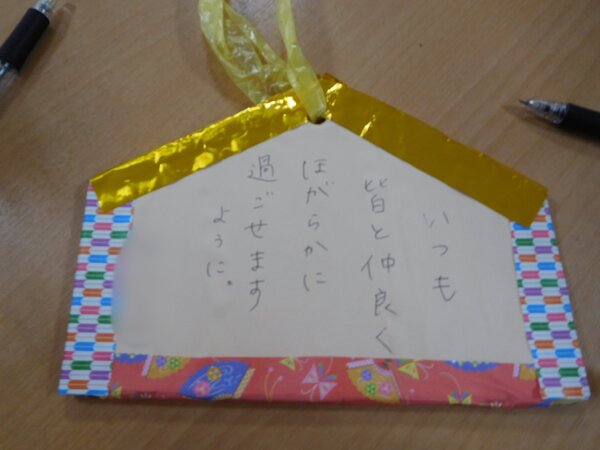 いつも
皆と仲良く
ほがらかに
過ごせます
ように。